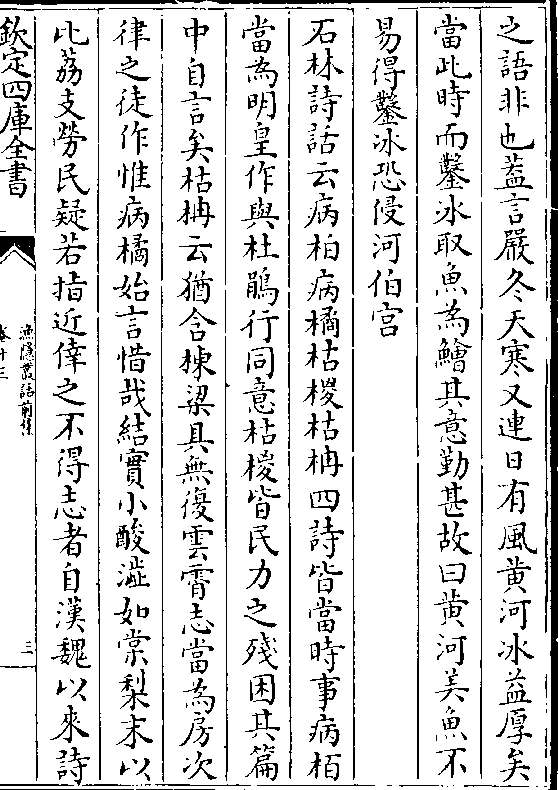 之語非也蓋言嚴冬天寒又連日有風黄河冰益厚矣
當此時而鑿冰取魚為鱠其意勤甚故曰黄河美魚不
易得鑿冰恐侵河伯宫
石林詩話云病柏病橘枯椶枯柟四詩皆當時事病栢
當為明皇作與杜鵑行同意枯椶皆民力之殘困其篇
中自言矣枯柟云猶含棟梁具無復雲霄志當為房次
律之徒作惟病橘始言惜哉結實小酸澁如棠梨末以
比荔支勞民疑若指近倖之不得志者自漢魏以來詩
欽定四庫全書
漁隱叢話前集
卷十三
三